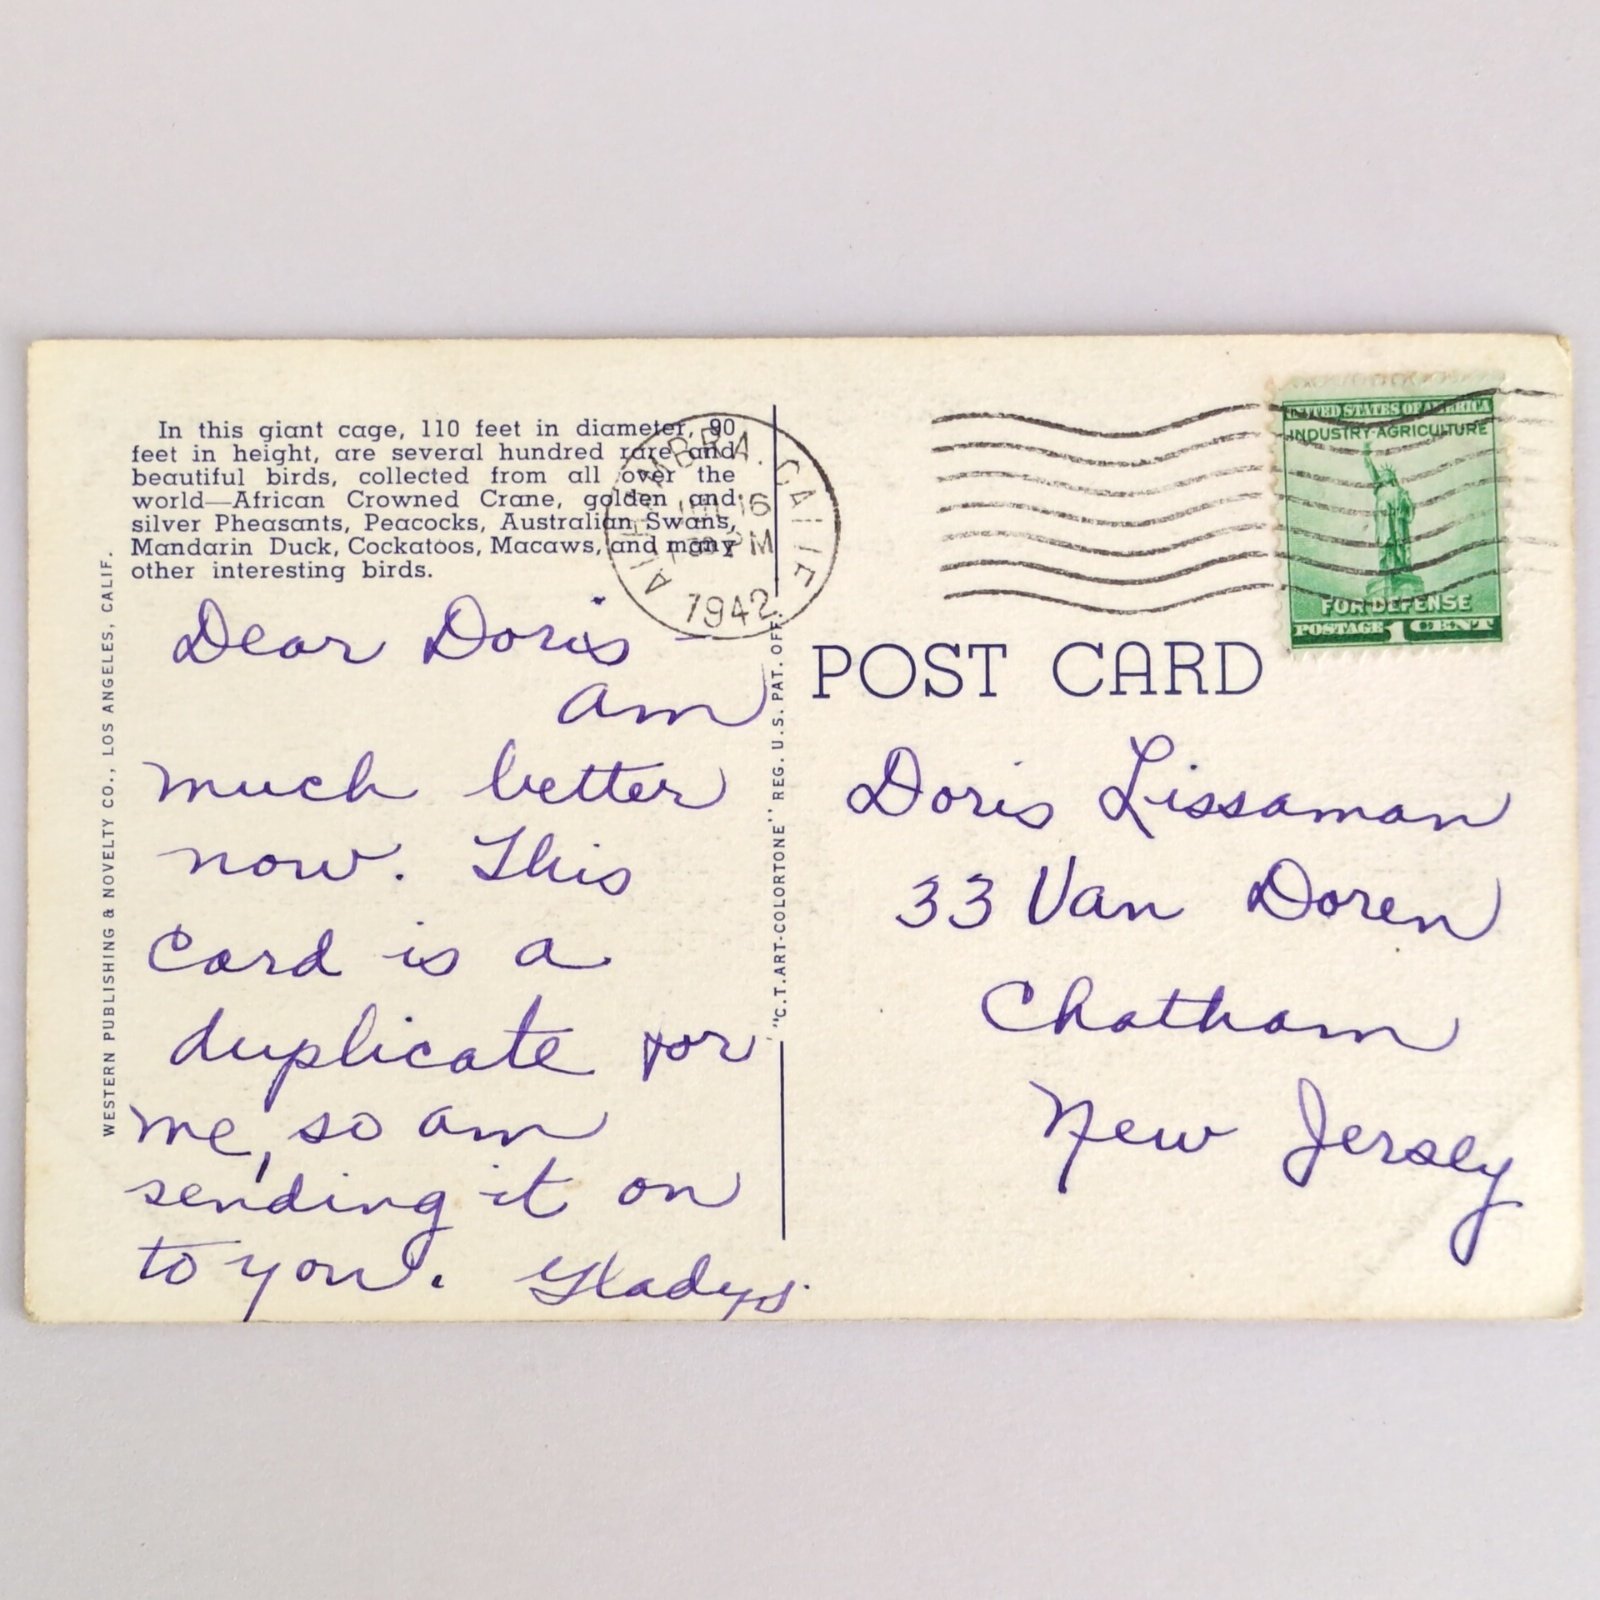 In this giant cage, 110 feet in diameter, 90
feet in height, are several hundred rare and
beautiful birds, collected from all over the
world—African Crowned Crane, golden and
silver Pheasants, Peacocks, Australian Swans,
Mandarin Duck, Cockatoos, Macaws, and many
other interesting birds.
WESTERN PUBLISHING & NOVELTY CO., LOS ANGELES, CALIF.
Dear Doris —
am
much better
now. This
card is a
duplicate for
me, so am
sending it on
to you. Gladys.
"C.T. ART-COLORTONE" REG. U.S. PAT. OFF.
ALHAMBRA, CALIF.
16
PM
1942
UNITED STATES OF AMERICA
INDUSTRY·AGRICULTURE
FOR DEFENSE
POSTAGE 1 CENT
POST CARD
Doris Lissaman
33 Van Doren
Chatham
New Jersey